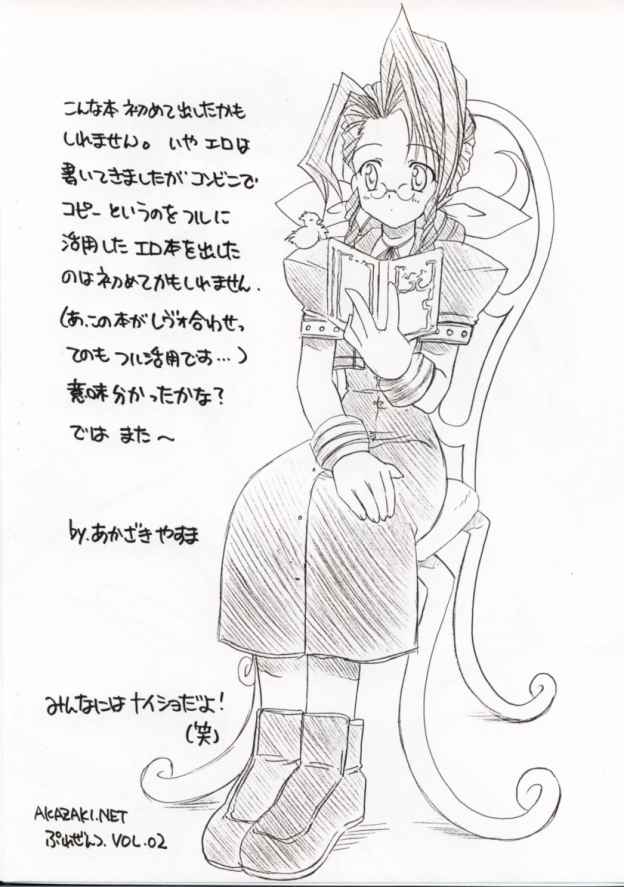 こんな本 初めて出したかも
しれません。 いや エロは
書いてきましたが コンビニで
コピー というのを フルに
活用した エロ本を出した
のは初めてかもしれません.
(あ、この本がレヴォ合わせっ
てのも フル活用です…)
意味分かったかな?
では また～
by.あかざき やすま
みんなには ナイショだよ!
(笑)
AKAZAKI.NET
ぷれぜんつ. VOL.02